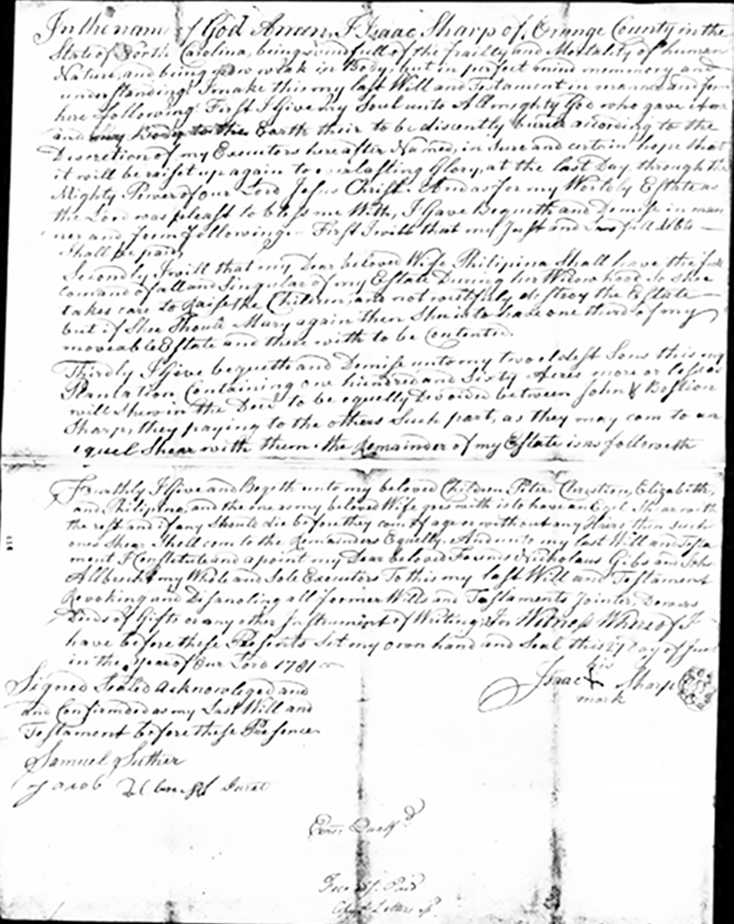 In the name of God Amen, I Isaac Sharp of Orange County in the
State of North Carolina, being mindfull of the frailty and Mortality of human
Nature, and being now weak in Body, but in perfect mind memmory, and
understanding: I make this my last Will and Testament in manner and form
here following: First I Give my Soul unto Allmighty God who gave it me
and my Body to the Earth their to be discently buried according to the
Discretion of my Executors hereafter Named, in Sure and certain hope that
it will be raised up again to everlasting Glory, at the last Day, through the
Mighty Power of our Lord Jesus Christ. And as for my Worldly Estate as
the Lord was pleast to bless me With, I Gave Bequeth and Demise in man
ner and form following:- First I will that my Just and Lawfull debts
Shall be paid,
Secondly I will that my Dear beloved Wife Philipina Shall have the full
comand of all and Singular of my Estate During her Widowhood So she
takes care to Raise the Children, and not wilfully destroy the Estate —
but if She Should Mary again then She is to have one third of my
moveable Estate and there with to be contented.
Thirdly I Give bequeth and Demise unto my two eldest Sons this my
Plantation Containing one hundred and Sixty Acres more or less as
will Shew in the Deed to be equelly Devided between John & Bostion
Sharp, they paying to the others Such part, as they may com to an
equel Shear with them. the Remainder of my Estate is as followeth
Fourthly I Give and Beqeth unto my beloved Children Peter Chrestion, Elizabeth,
and Philipina, and the one as my beloved Wife goes with is to have an Eqel Shear with
the rest, and if any Should die before they com of age or without any Heirs then such
ones Shear Shall com to the Remainders Equelly. And unto my last Will and Testa
ment I Constetute and apoint my Dear Beloved Friends Nicholaus Gibs and John
Albrecht my Whole and Sole Executors To this my last Will and Testament
Revoking and Disanoling all former Wills and Testaments Jointer, Dowers
Deeds of Gifts or any other Instrument of Writing, In Witness Whereof I
have before these Presents Set my own hand and Seal this 27 Day of
in the year of Our Lord 1781
his
Isaac Sharp
mark
Signed Sealed Acknowleged and
and Confirmded as my Last Will and
Testament before these Presence
Samuel Suther
Jacob Jurat
Exrs Quallfd
Fee Paid